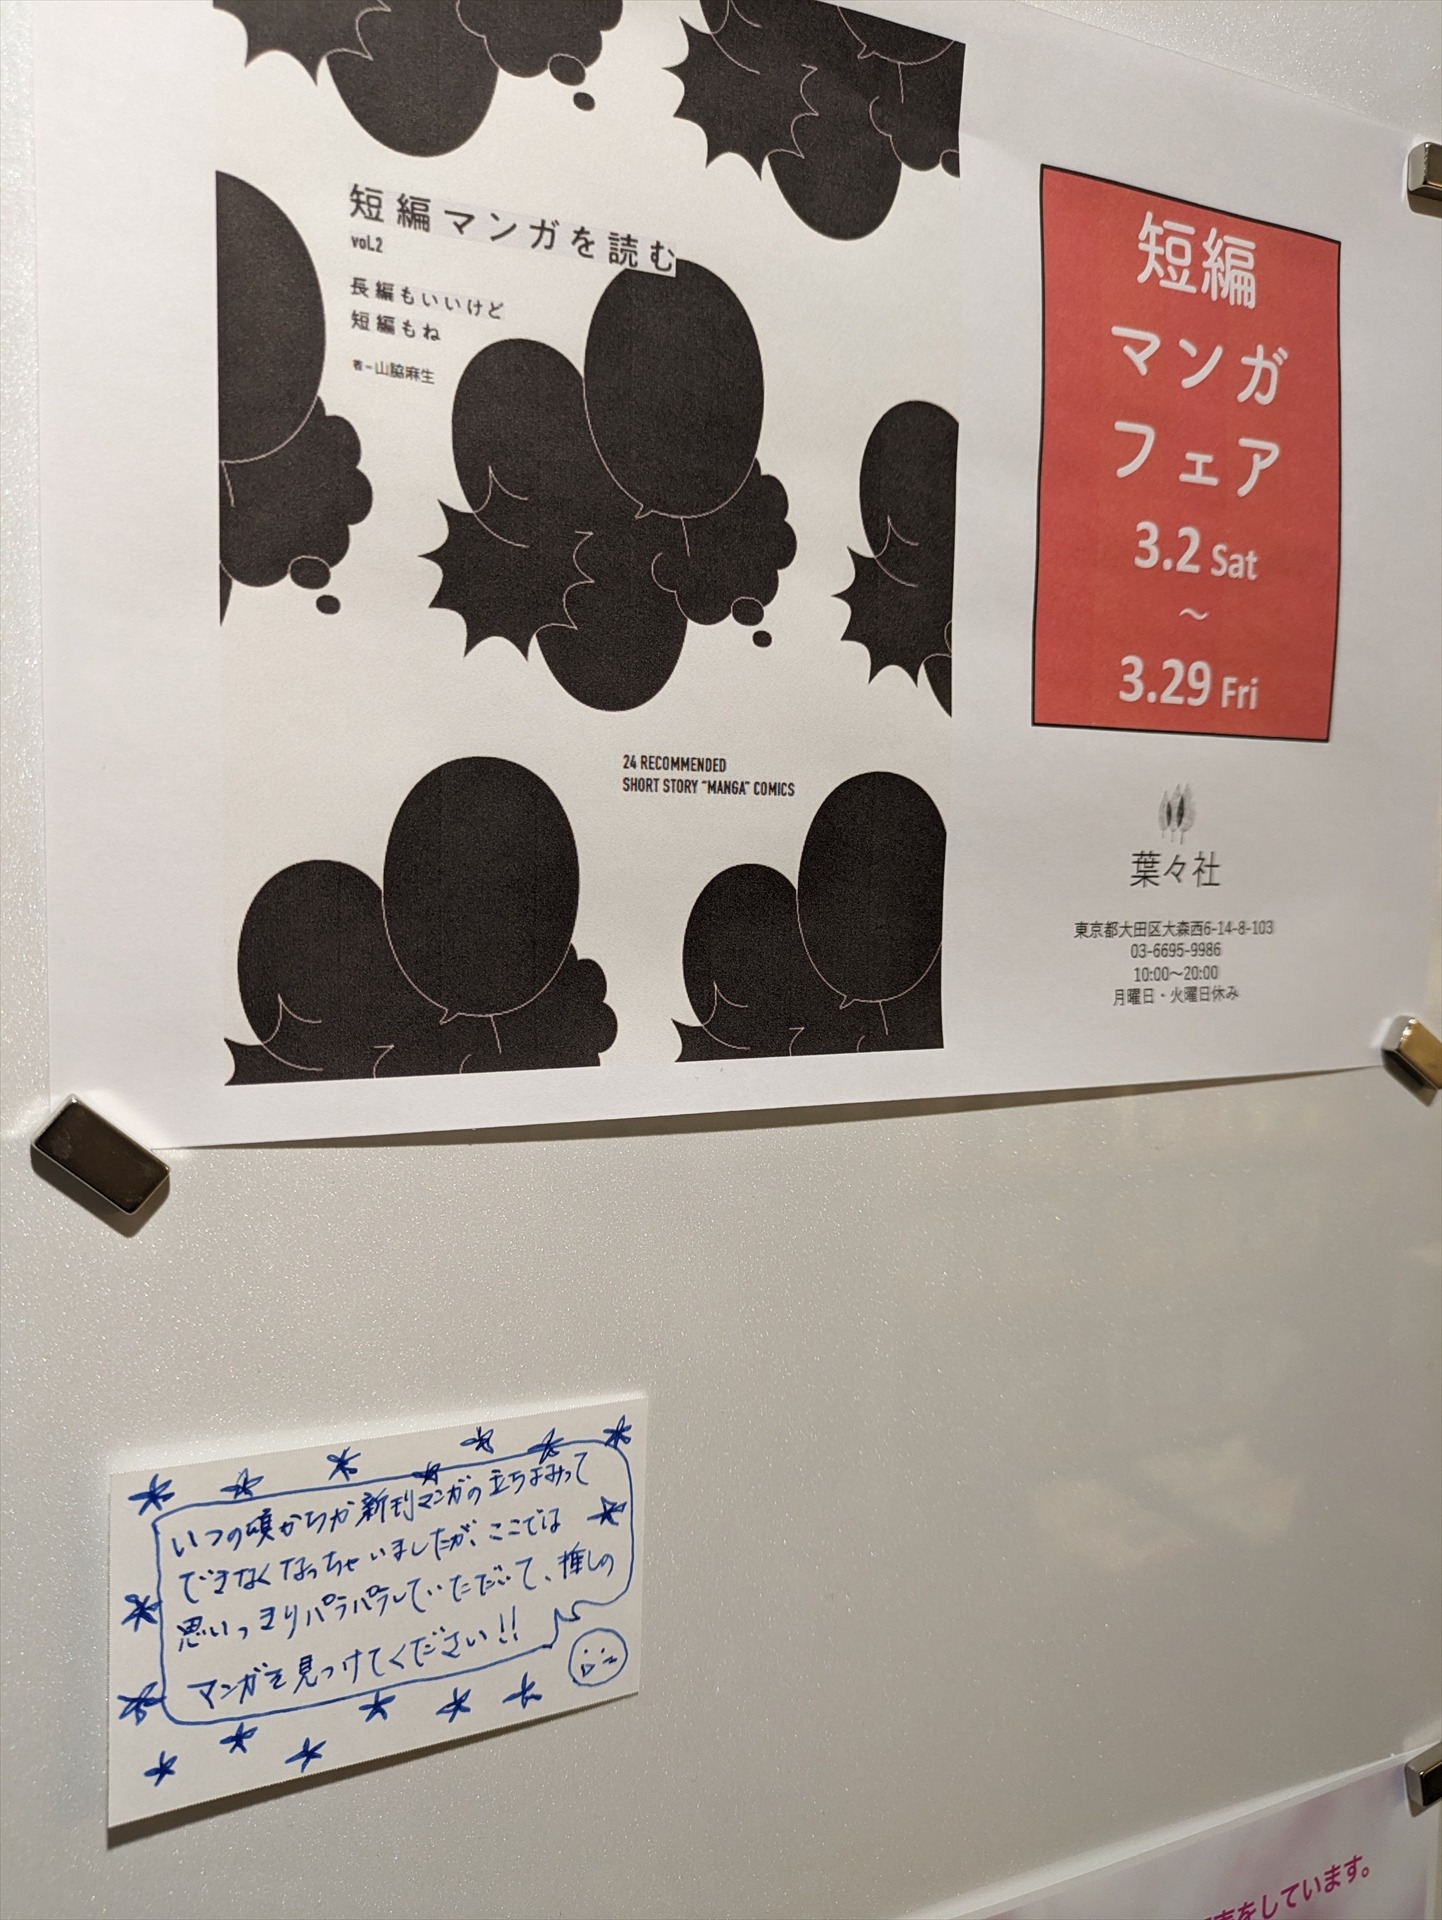 短編マンガを読む
vol.2
長編もいいけど
短編もね
著－山脇麻生
24 RECOMMENDED
SHORT STORY "MANGA" COMICS
短編
マンガ
フェア
3.2 Sat
～
3.29 Fri
葉々社
東京都大田区大森西6-14-8-103
03-6695-9986
10:00～20:00
月曜日・火曜日休み
いつの頃からか新刊マンガの立ちよみって
できなくなっちゃいましたが、ここでは
思いっきりパラパラしていただいて、推しの
マンガを見つけてください!!
をしています。